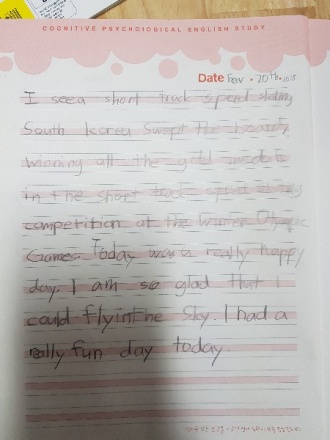 COGNITIVE PSYCHOLOGICAL ENGLISH STUDY
Date Fev . 20th . 2018
I see a short track speed skating
South korea swept the
winning all the gold medals
in the short track speed
competition at the winter Olympic
Games. Today was a really happy
day. I am so glad that I
could fly in the sky. I had a
really fun day today.